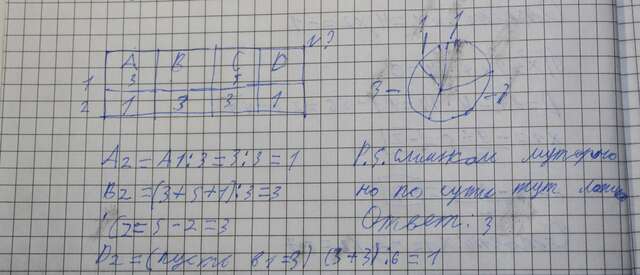 №?
A B C D
1 3 5
2 1 3 3 1
1 1
3 - - 3
A2 = A1:3 = 3:3 = 1
B2 = (3+5+1):3 = 3
C2 = 5 - 2 = 3
D2 = (пусть B1 = 3) (3+3):6 = 1
P.S. слишком муторно
но по сути тут
Ответ: 3